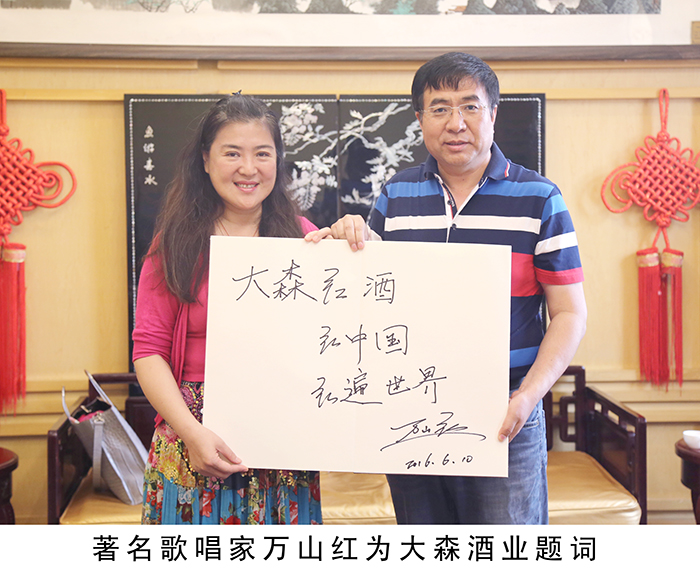 大森红酒
红中国
红遍世界
万山红
2016.6.10
著名歌唱家万山红为大森酒业题词